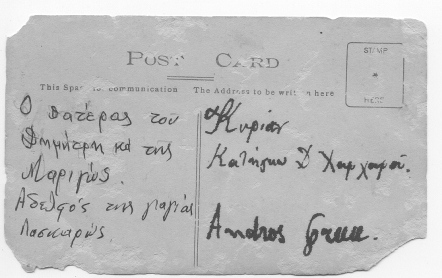 POST CARD
This Space for communication
The Address to be written here
STAMP
HERE
Ο πατέρας του
Δημήτρη και της
Μαριγώς.
Αδελφός της γιαγιάς
Λασκαρώς.
Κυρίαν
Δ
Andros